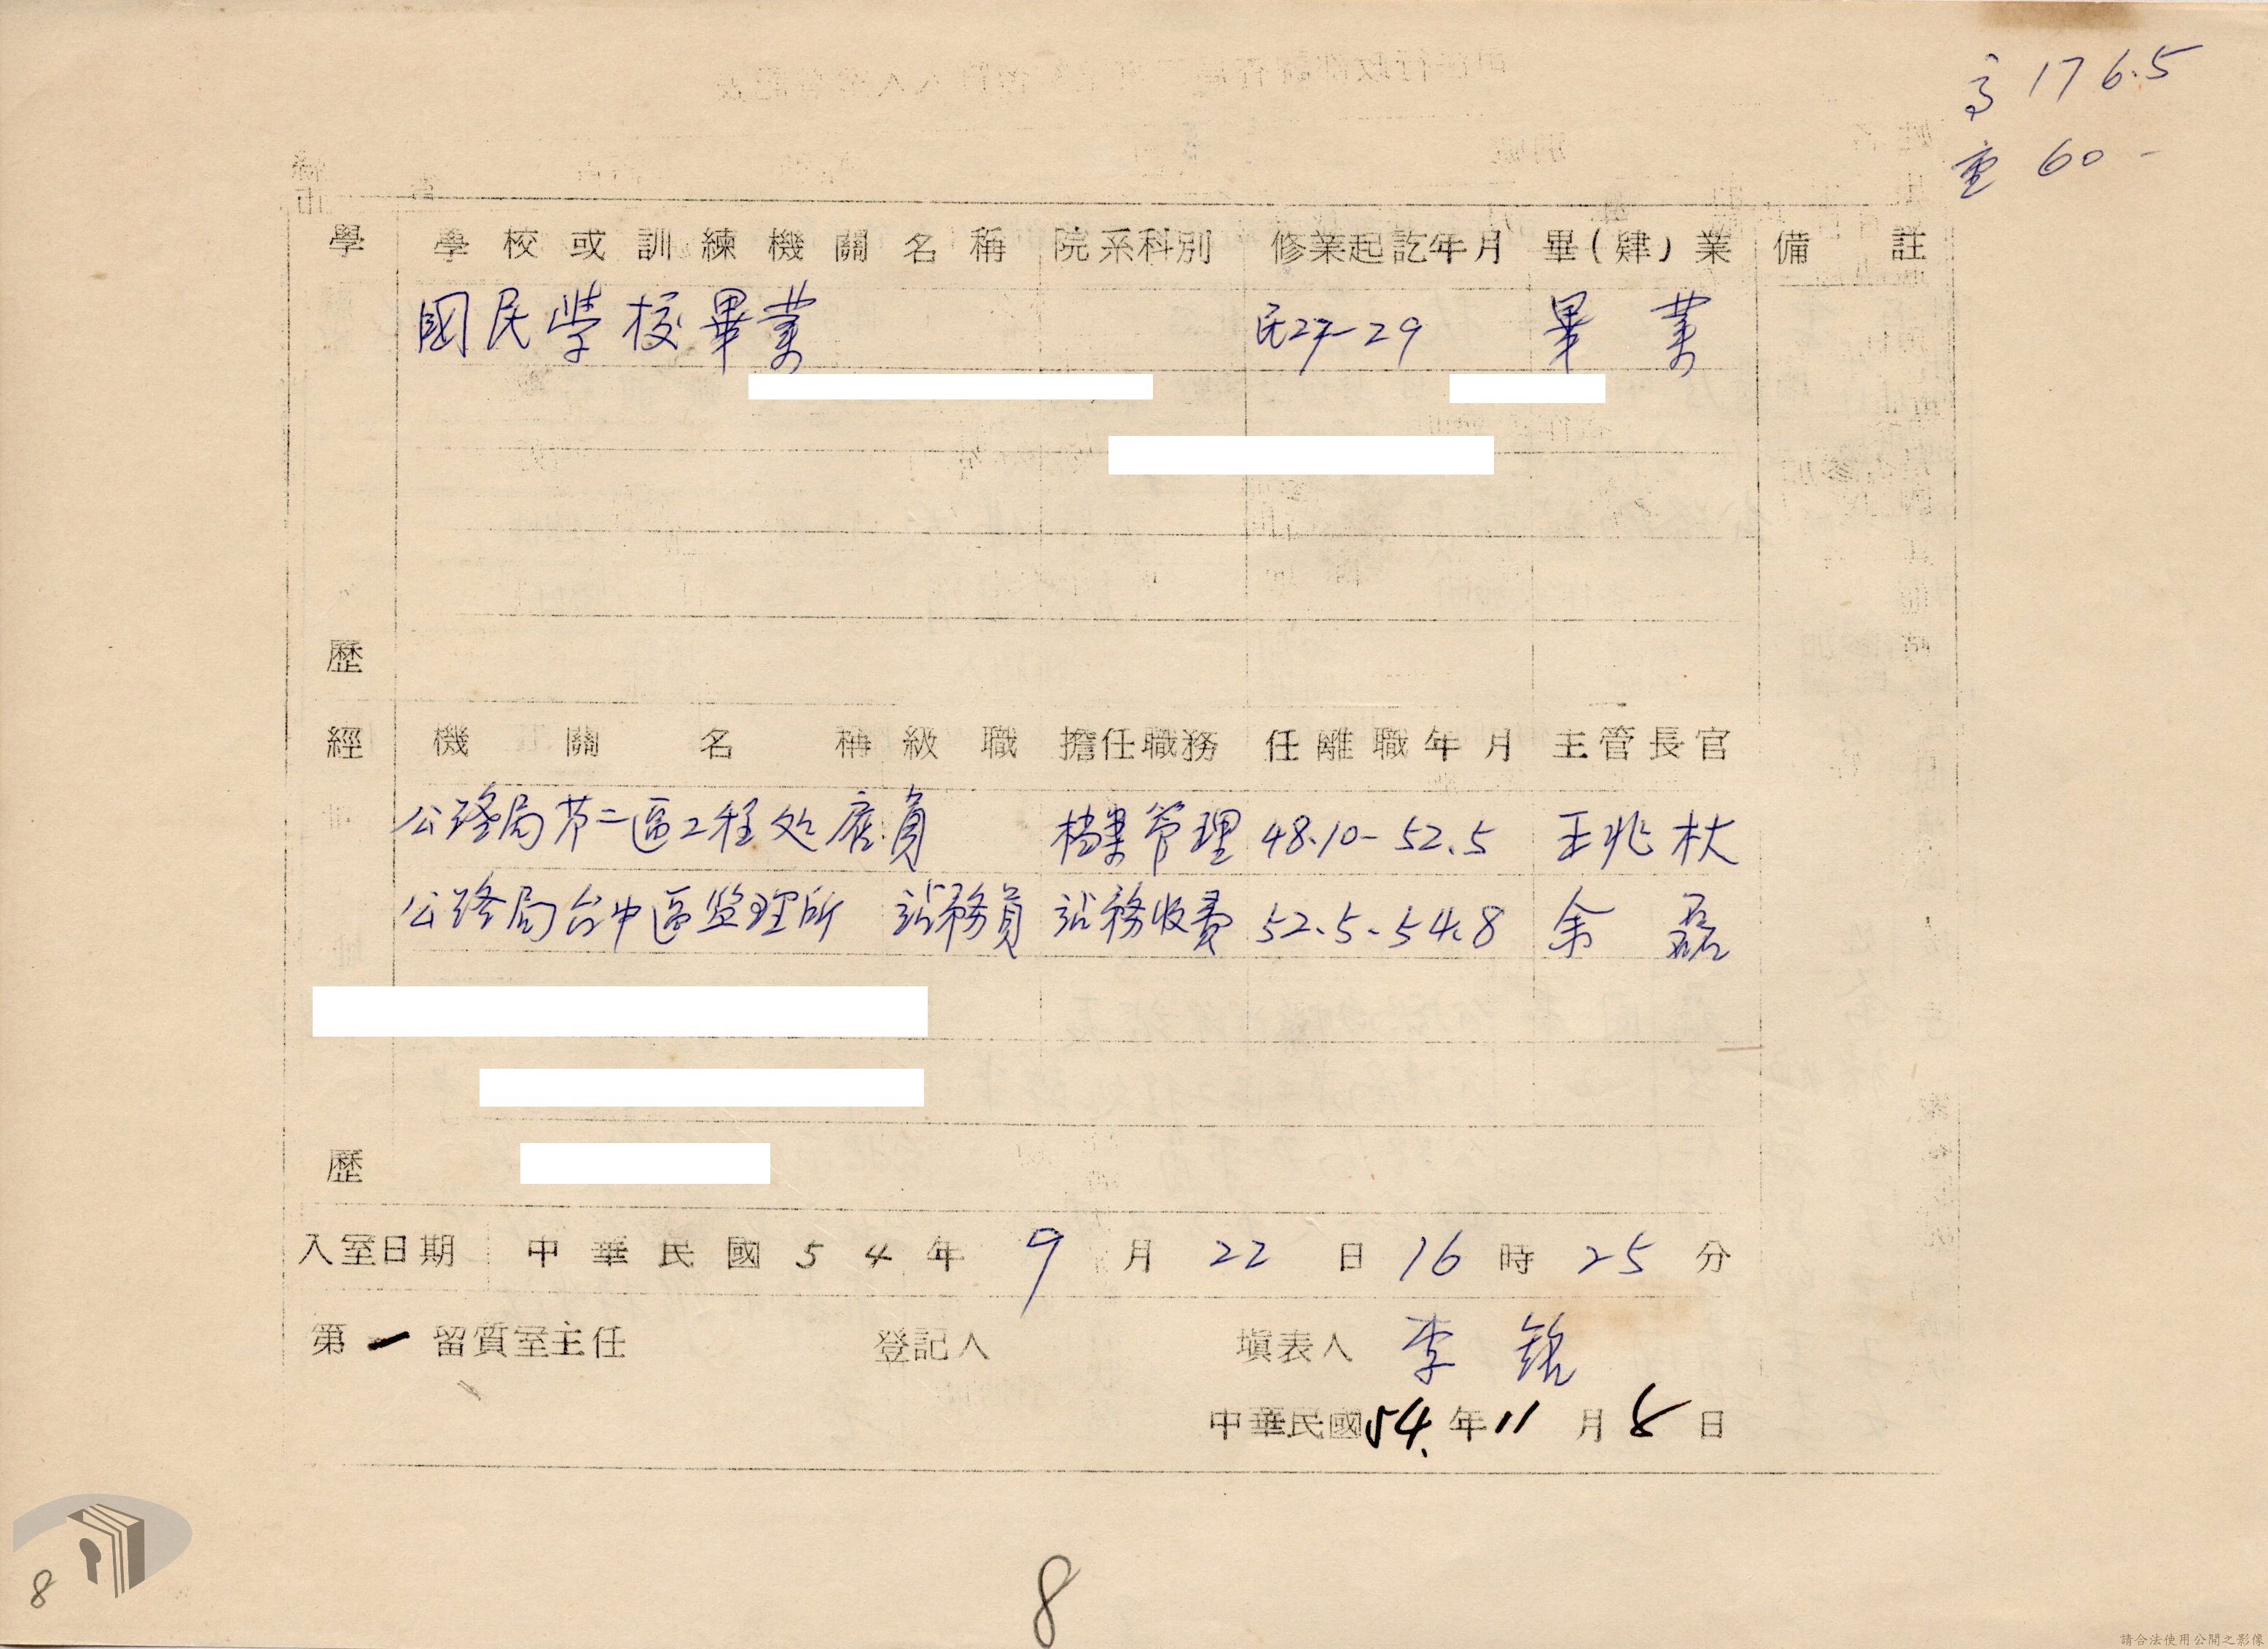 高 176.5
重 60-
學 學校或訓練機關名稱 院系科別 修業起訖年月 畢(肄)業 備註
國民學校畢業 民27-29 畢業
歷
經 機關名稱 級職 擔任職務 任離職年月 主管長官
公路局苐二區工程处 雇員 档案管理 48.10-52.5 王兆杕
公路局台中區监理所 站務員 站務收費 52.5-54.8 余磊
歷
入室日期 中華民國54年9月22日16時25分
第一留質室主任 登記人 填表人 李銘
中華民國54.年11月8日
8
8
請合法使用公開之影像